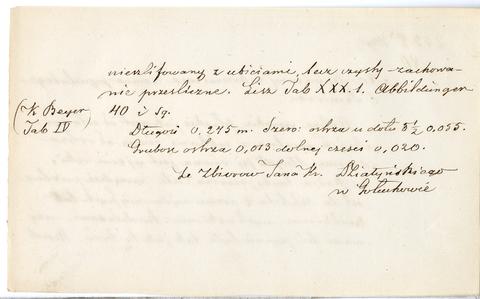 nieszlifowany z ubiciami, lecz czysty - zachowa-
nie prześliczne. Lisz Tab XXX. 1. Abbildungen
40 i sq.
(K. Beyer
Tab IV)
Długość 0,275 m. Szero: ostrza u dołu 8½ 0,055.
Grubość ostrza 0,013 dolnej części 0,020.
Ze Zbiorów Jana Hr. Działyńskiego
w Gołuchowie